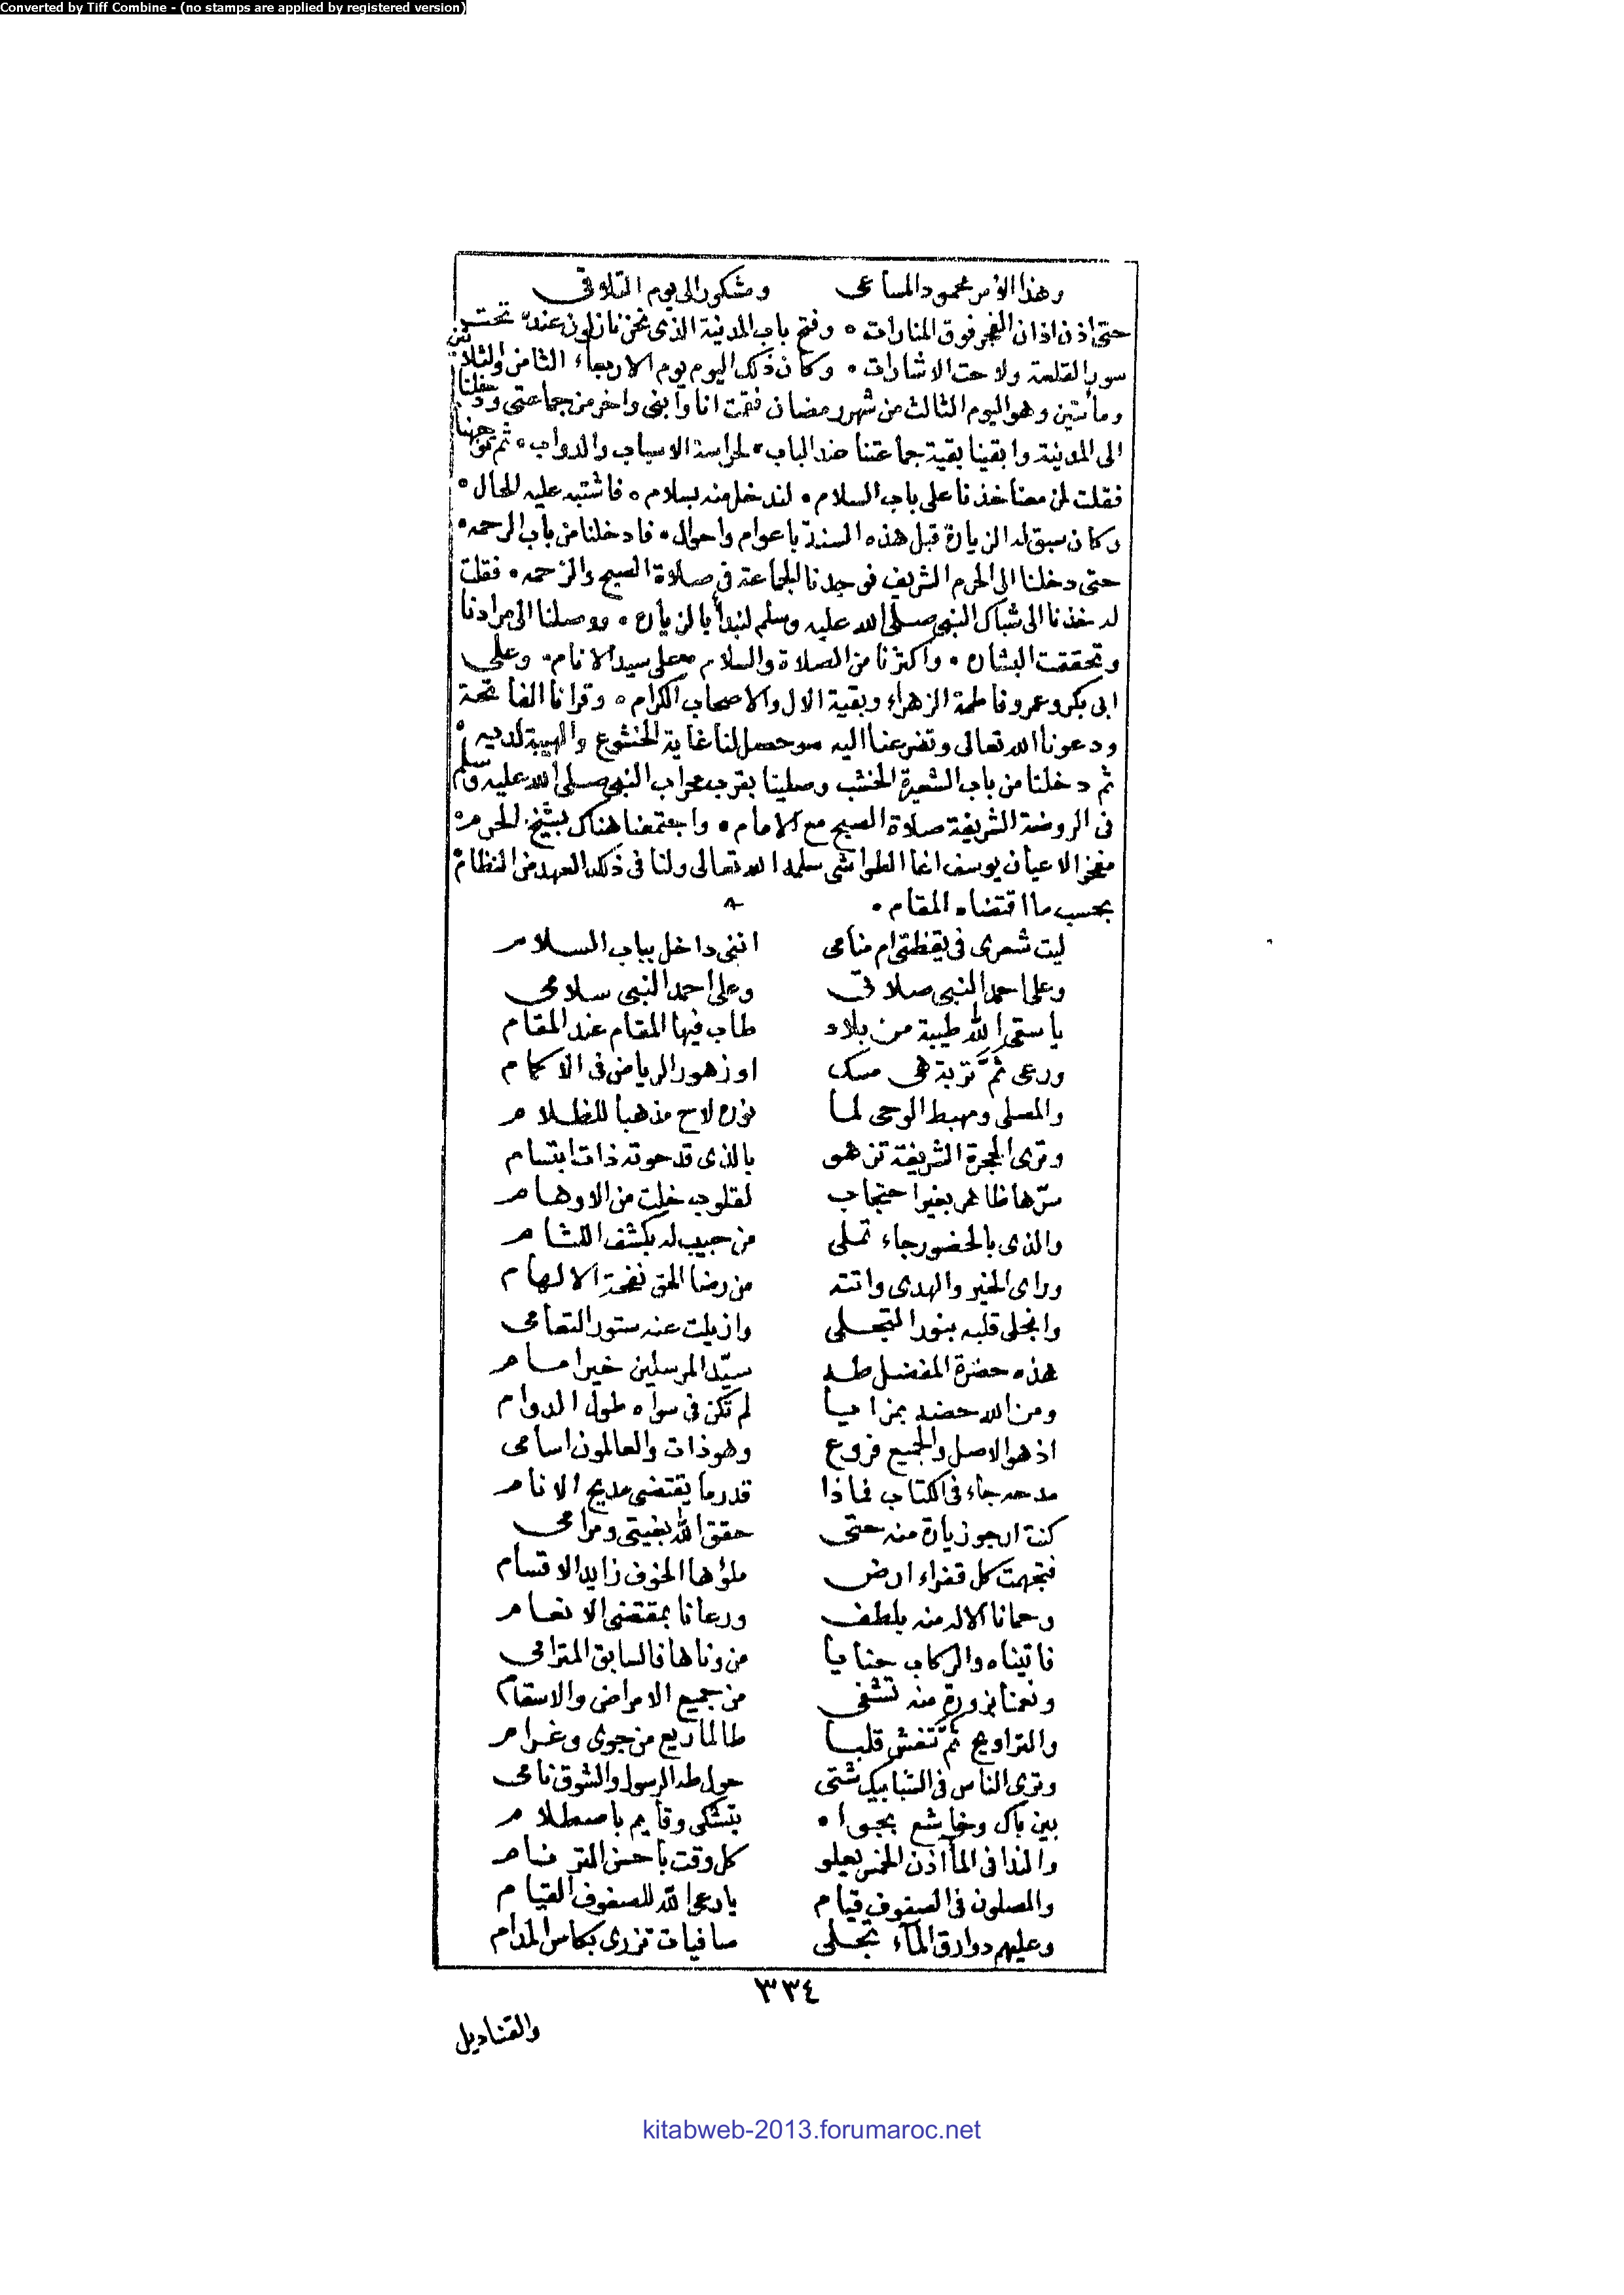 Converted by Tiff Combine - (no stamps are applied by registered version)
وهذا الامر محمود المساعى ومشكور الى يوم التلاقى
حتى اذن اذان الفجر فوق المنارات ٠ وفتح باب المدينة الذى نحن نازلون عنده تحت
سور القلعة ولاحت الاشارات ٠ وكان ذلك اليوم يوم الاربعاء الثامن والثلاثين
ومأتين وهو اليوم الثالث من شهر رمضان فقمت انا وابنى واخر من جماعتى ودخلنا
الى المدينة وابقينا بقية جماعتنا عند الباب ٠ لحراسة الاسباب والدواب ٠ ثم توجهنا
فقلت لمن معنا خذنا على باب السلام ٠ لندخل منه بسلام ٠ فاشتبه عليه الحال ٠
وكان سبق له الزيارة قبل هذه السنة باعوام واحوال ٠ فادخلنا من باب الرحمه ٠
حتى دخلنا الى الحرم الشريف فوجدنا الجماعة فى صلاة الصبح والزحمه ٠ فقلت
له خذنا الى شباك النبى صلى الله عليه وسلم لنبدأ بالزياره ٠ ووصلنا الى مرادنا
وتحققت البشاره ٠ واكثرنا من الصلاة والسلام على سيد الانام ٠ وعلى
ابى بكر وعمر وفاطمة الزهراء وبقية الال والاصحاب الكرام ٠ وقرانا الفاتحة
ودعونا الله تعالى وتضرعنا اليه وحصل لنا غاية الخشوع والهيبة لديه ٠
ثم دخلنا من باب الشعيرة الخشب وصلينا بقرب محراب النبى صلى الله عليه وسلم
فى الروضة الشريفة صلاة الصبح مع الامام ٠ واجتمعنا هناك بشيخ الحرم
مفخر الاعيان يوسف اغا الطواشى سلمه الله تعالى ولنا فى ذلك العهد من النظام
بحسب ما اقتضاه المقام ٠
ليت شعرى فى يقظتى ام منامى اننى داخل بباب السلام
وعلى احمد النبى صلاتى وعلى احمد النبى سلامى
يا سقى الله طيبة من بلاد طاب فيها المقام عند المقام
ورعى ثَمَّ تربة هى مسك او زهور الرياض فى الاكمام
والمصلى ومهبط الوحى لما نوره لاح مذهبا للظلام
وترى الحجرة الشريفة تزهو بالذى قد حوته ذات ابتسام
سرّها ظاهر بغير احتجاب لقلوب خلت من الاوهام
والذى بالحضور جاء تملى من حبيب له بكشف اللثام
وراى الخير والهدى واتته من رضا الحق نفحة الالهام
وانجلى قلبه بنور التجلى وازيلت عنه ستور التعامى
هذه حضرة المفضل طه سيّد المرسلين خير امام
ومن الله خصه بمزايا لم تكن فى سواه طول الدوام
اذ هو الاصل والجميع فروع وهو ذات والعالمون اسامى
مدحه جاء فى الكتاب فماذا قدر ما يقتضى مديح الانام
كنت ارجو زيارة منه حتى حقق الله بغيتى ومرامى
فتجهت كل قفراء ارض ملؤها الخوف زايد الاقسام
وحمانا الاله منه بلطف ورعانا بمقتضى الانعام
فاتيناه والركاب حنايا من وناها فالسابق المترامى
ونعمنا بزورة منه تشفى من جميع الامراض والاسقام
والتراويح ثَمَّ تنعش قلبا طالما ريع من جوى وغرام
وترى الناس فى الشبابيك شتى حول طه الرسول والشوق نامى
بين باك وخاشع بجواه يتشكى وقايم باصطلام
والندا فى المآذن الخمس يعلو كل وقت باحسن الترنام
والمصلون فى الصفوف قيام يا رعى الله للصفوف القيام
وعليهم دوارق المآء تجلى صافيات تزرى بكاس المدام
٣٣٤
والقناديل
kitabweb-2013.forumaroc.net